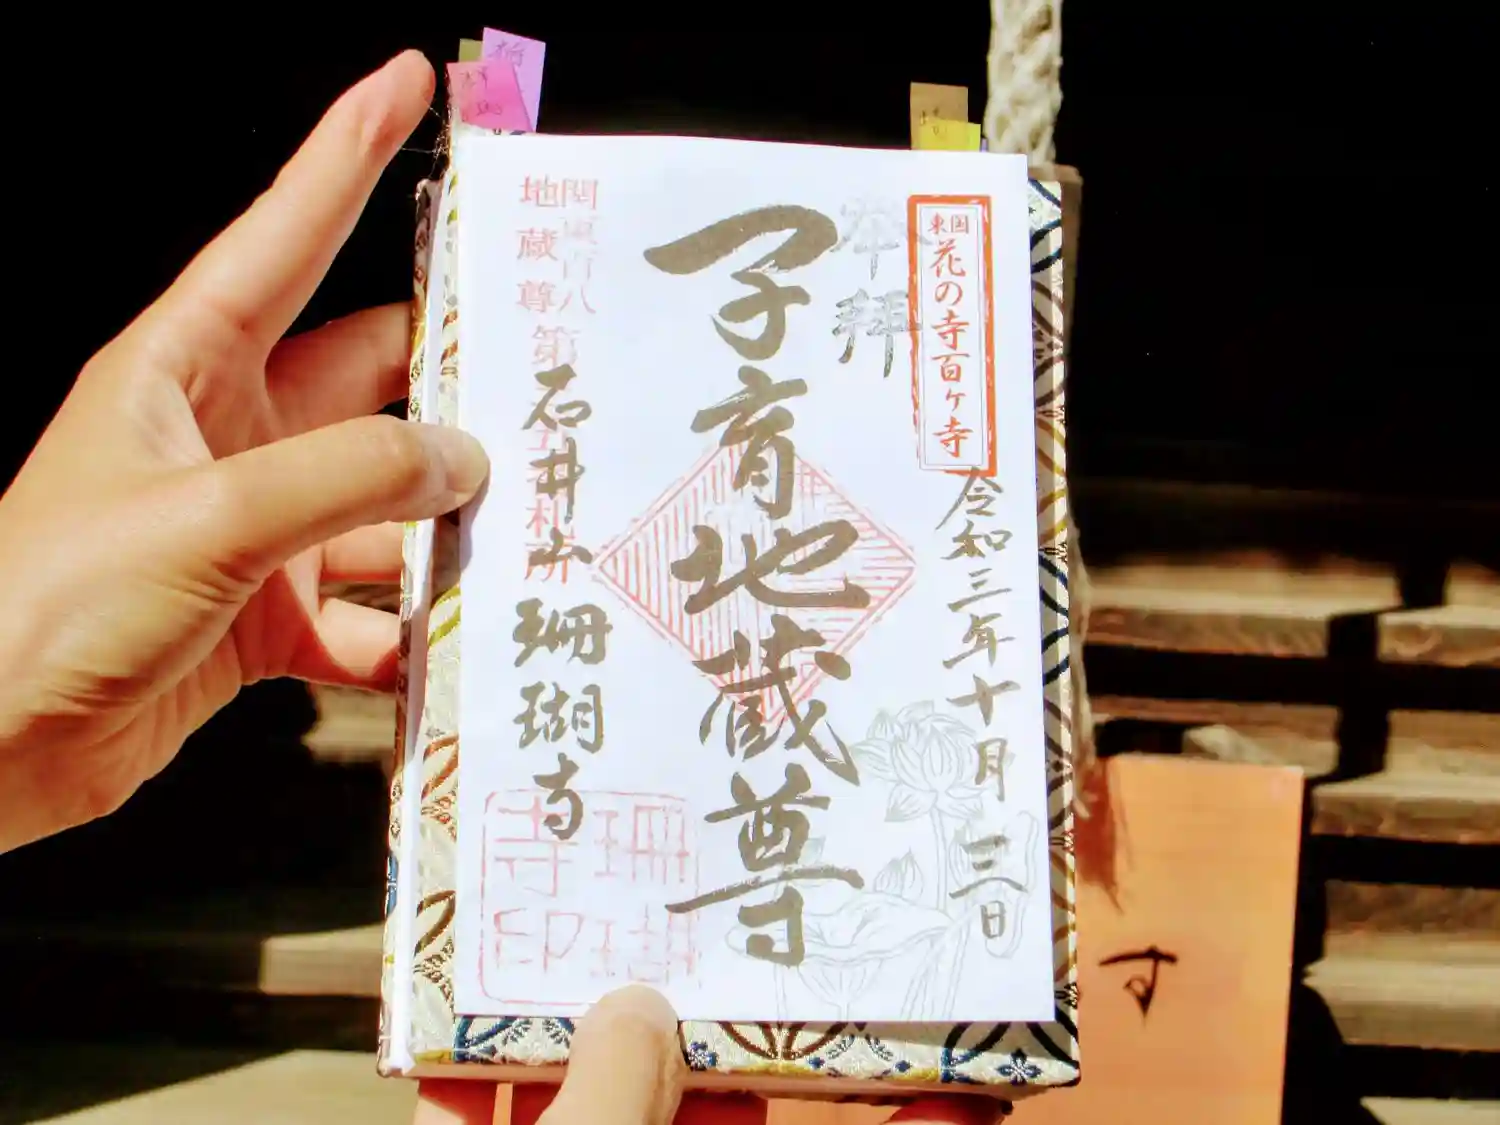 東国
花の寺百ヶ寺
奉拝
令和三年十月三日
子育地蔵尊
関東百八
地蔵尊
第
札所
石井山 珊瑚寺
珊瑚
寺印
す